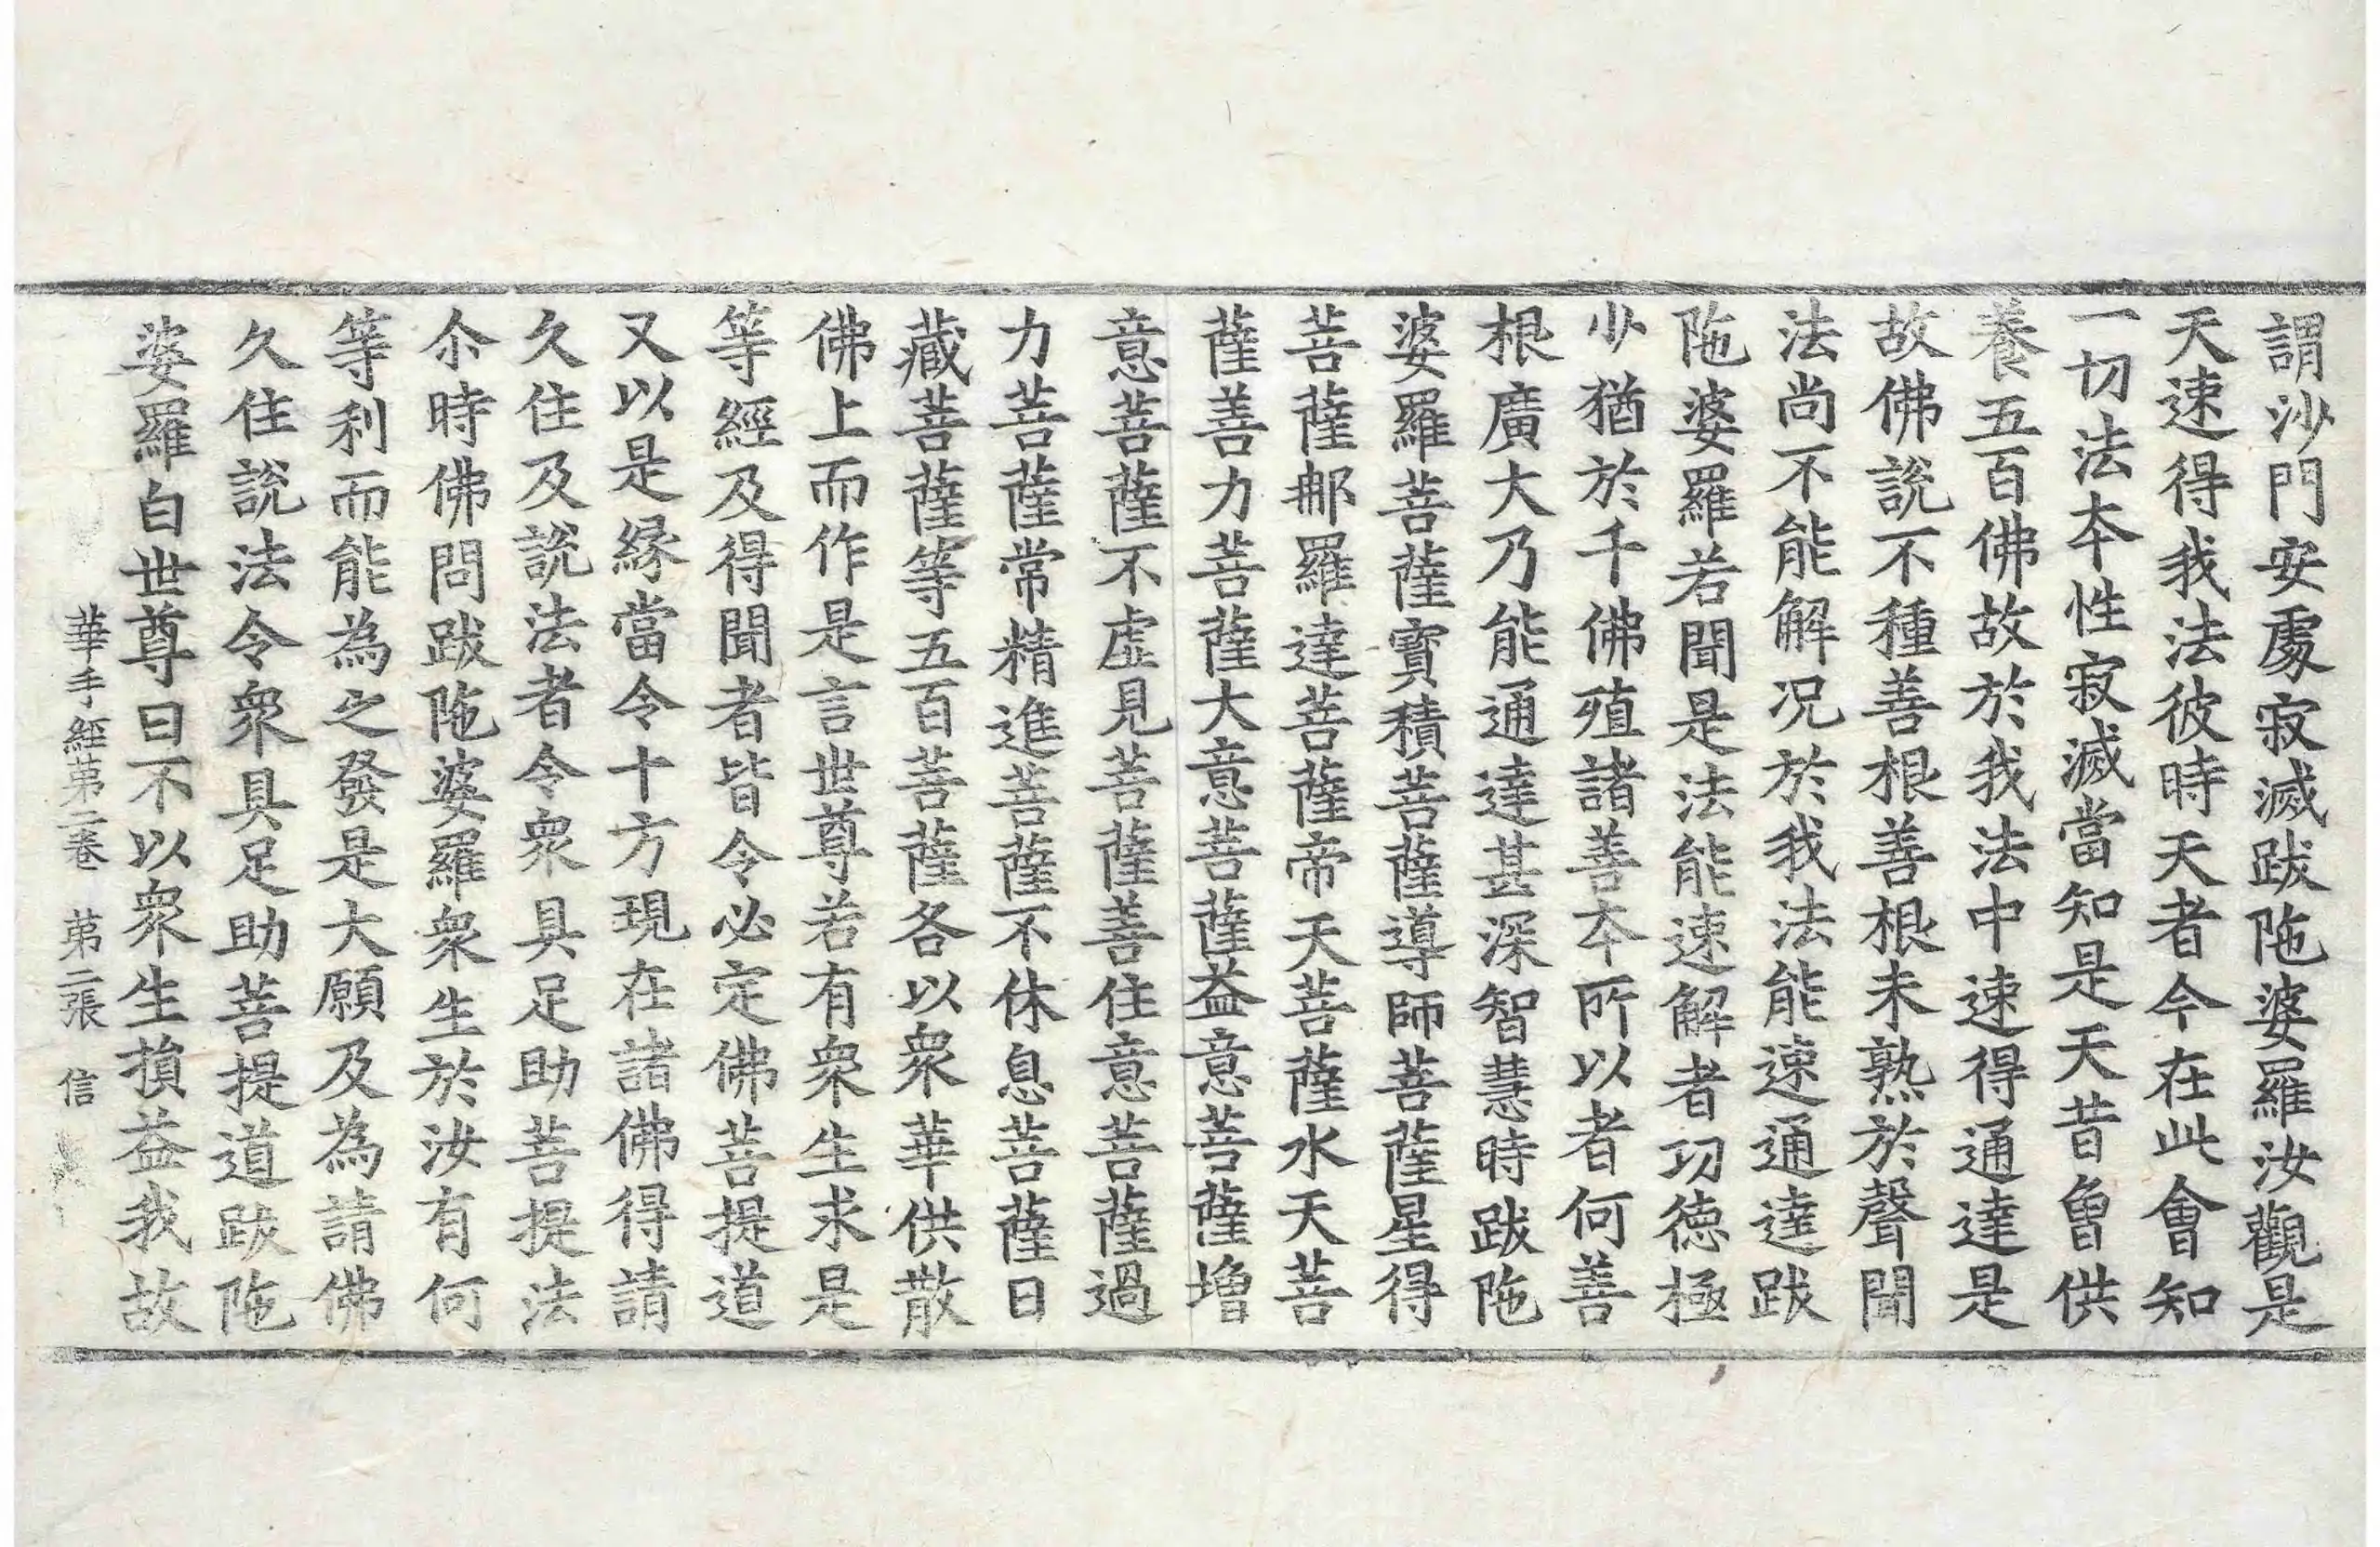 謂沙門安處寂滅跋陁婆羅汝觀是
天速得我法彼時天者今在此會知
一切法本性寂滅當知是天昔曾供
養五百佛故於我法中速得通達是
故佛說不種善根善根未熟於聲聞
法尚不能解况於我法能速通達跋
陁婆羅若聞是法能速解者功德極
少猶於千佛殖諸善本所以者何善
根廣大乃能通達甚深智慧時跋陁
婆羅菩薩寳積菩薩導師菩薩星得
菩薩𨚗羅達菩薩帝天菩薩水天菩
薩善力菩薩大意菩薩益意菩薩增
意菩薩不虛見菩薩善住意菩薩過
力菩薩常精進菩薩不休息菩薩日
藏菩薩等五百菩薩各以衆華供散
佛上而作是言世尊若有衆生求是
等經及得聞者皆令必定佛菩提道
又以是緣當令十方現在諸佛得請
久住及說法者令衆具足助菩提法
尒時佛問跋陁婆羅衆生於汝有何
等利而能為之發是大願及為請佛
久住說法令衆具足助菩提道跋陁
婆羅白世尊曰不以衆生損益我故
華手經第二卷 第二張 信